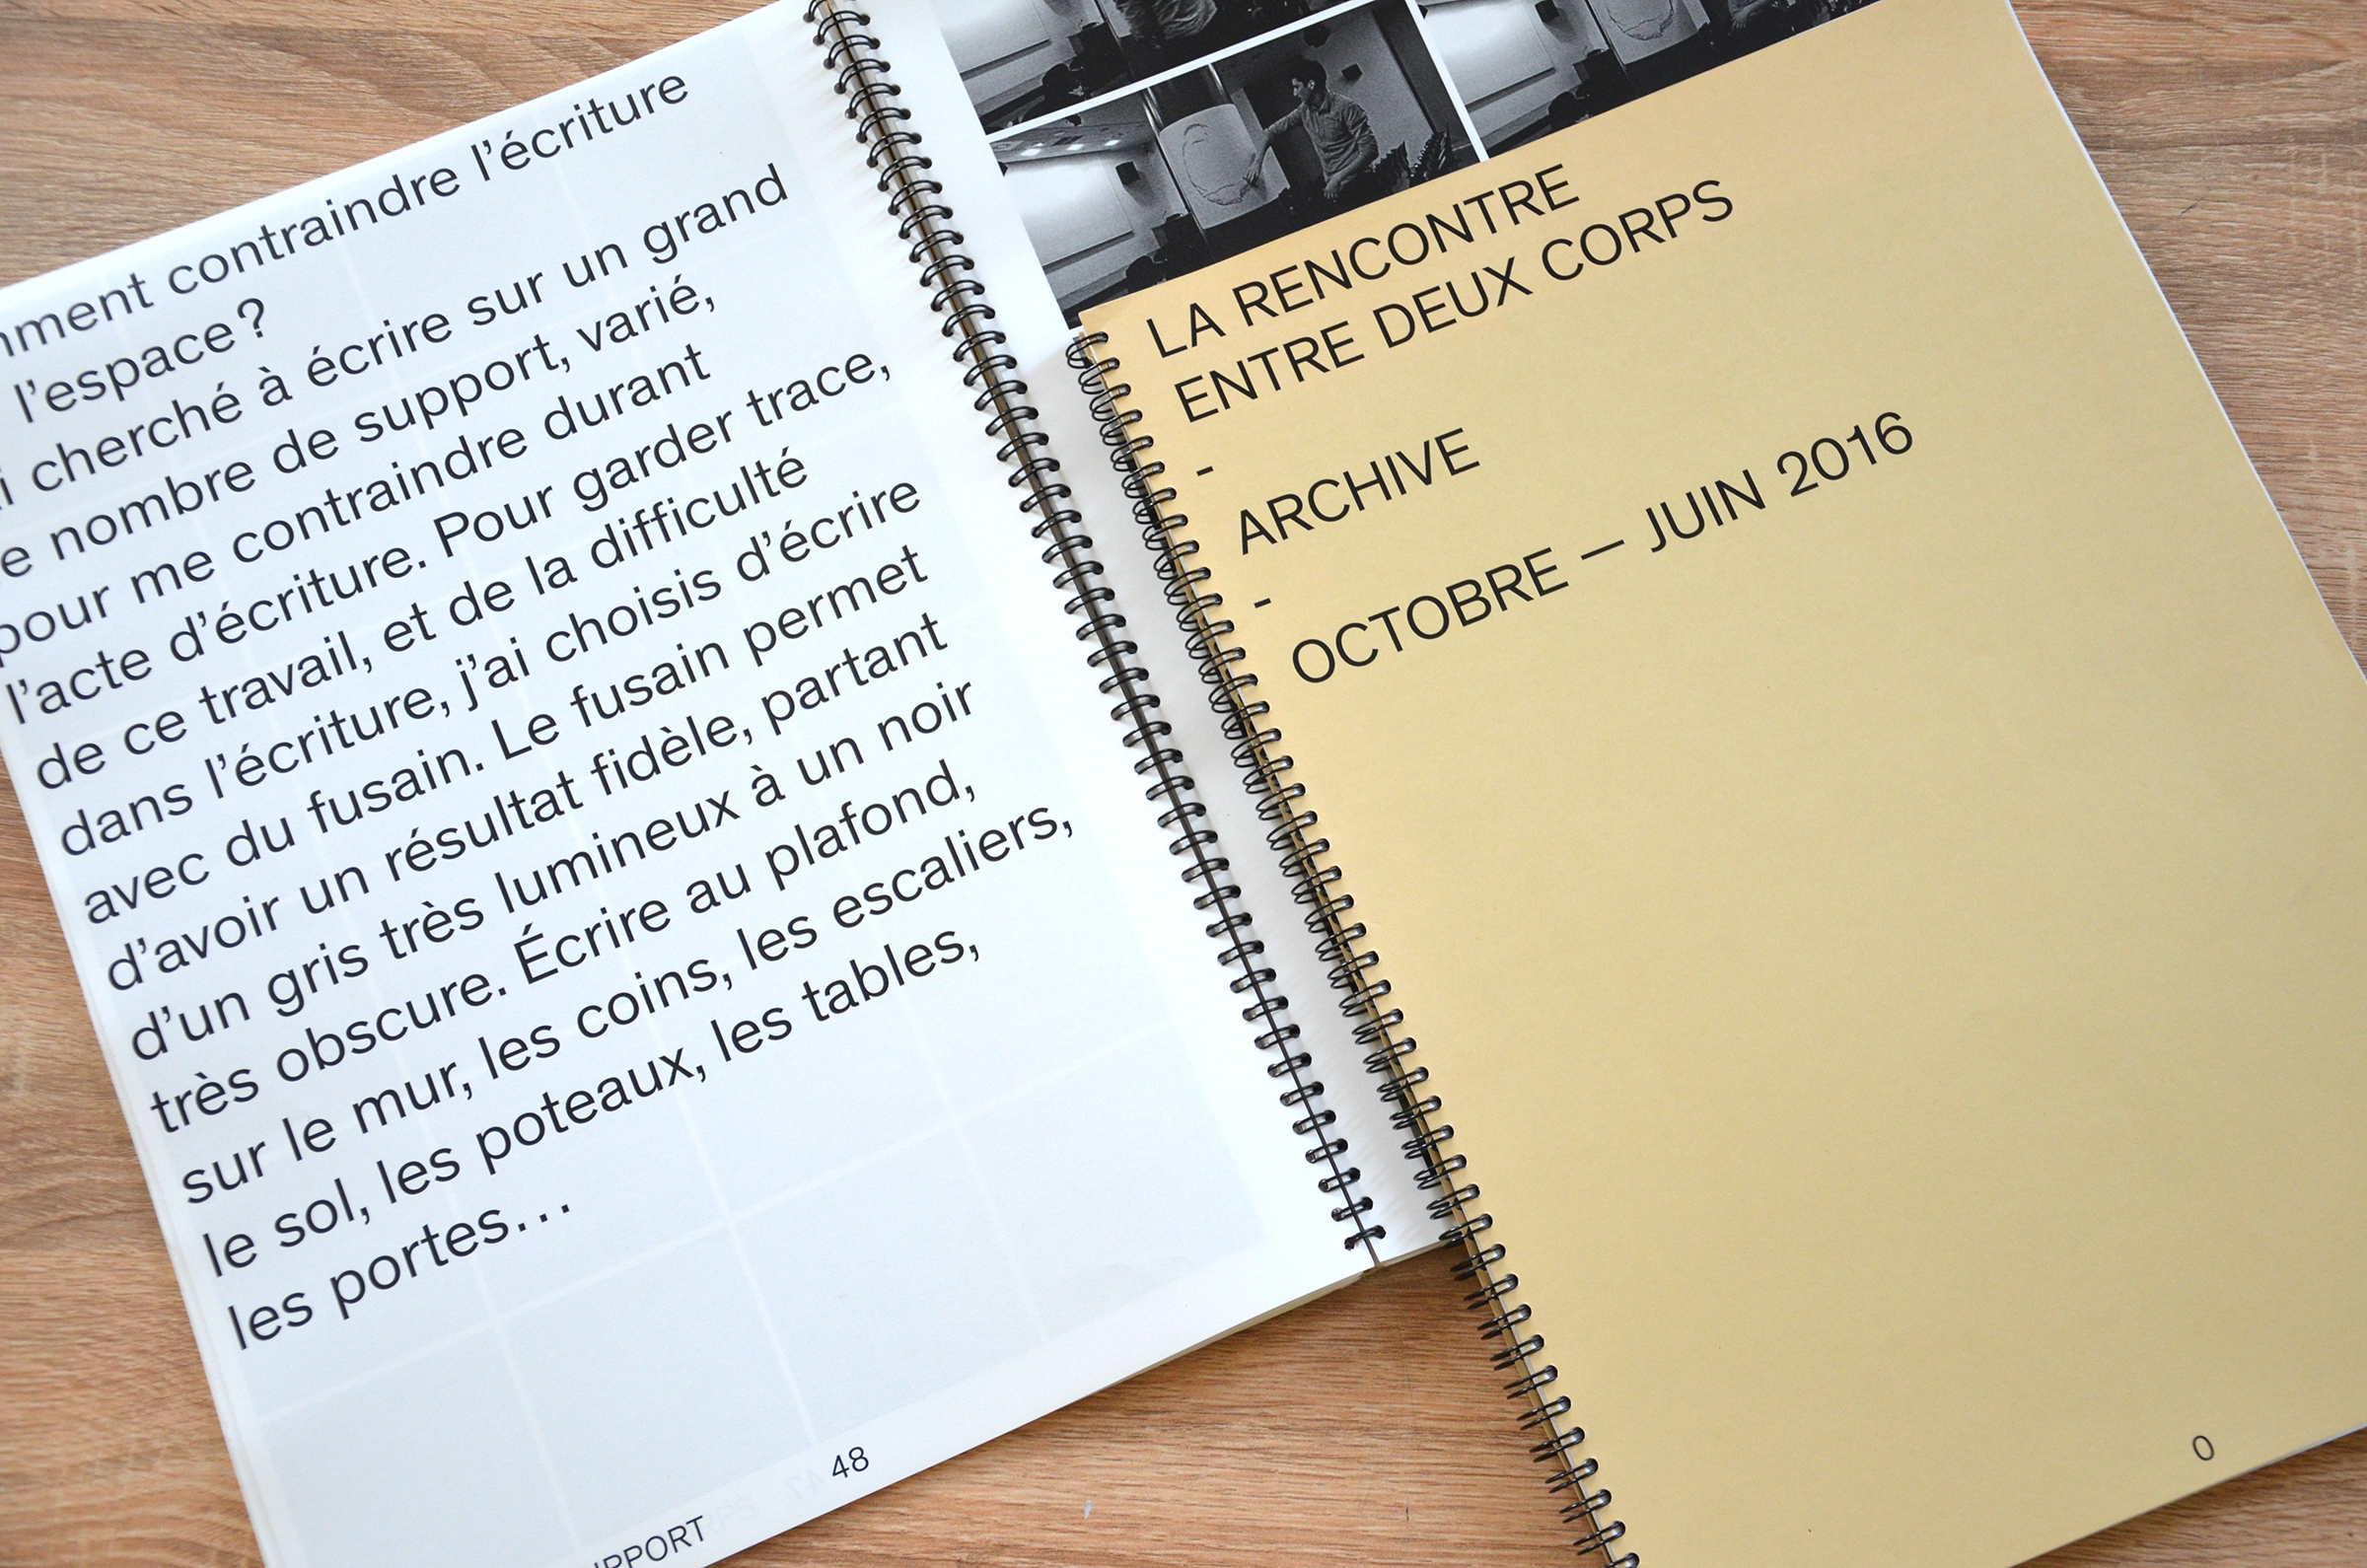 contraindre l’écriture
l’espace ?
cherché à écrire sur un grand
nombre de support, varié,
pour me contraindre durant
l’acte d’écriture. Pour garder trace,
de ce travail, et de la difficulté
dans l’écriture, j’ai choisis d’écrire
avec du fusain. Le fusain permet
d’avoir un résultat fidèle, partant
d’un gris très lumineux à un noir
très obscure. Écrire au plafond,
sur le mur, les coins, les escaliers,
le sol, les poteaux, les tables,
les portes…
48
LA RENCONTRE
ENTRE DEUX CORPS
-
ARCHIVE
-
OCTOBRE — JUIN 2016
0